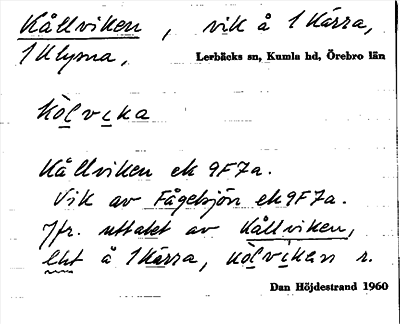 Kållviken, vik å 1 Kärra,
1 Klysna, Lerbäcks sn, Kumla hd, Örebro län
kòlvika
Kållviken ek 9F7a.
Vik av Fågelsjön ek 9F7a.
Jfr. uttalet av Kållviken,
å 1 Kärra, kòlvikan r.
Dan Höjdestrand 1960